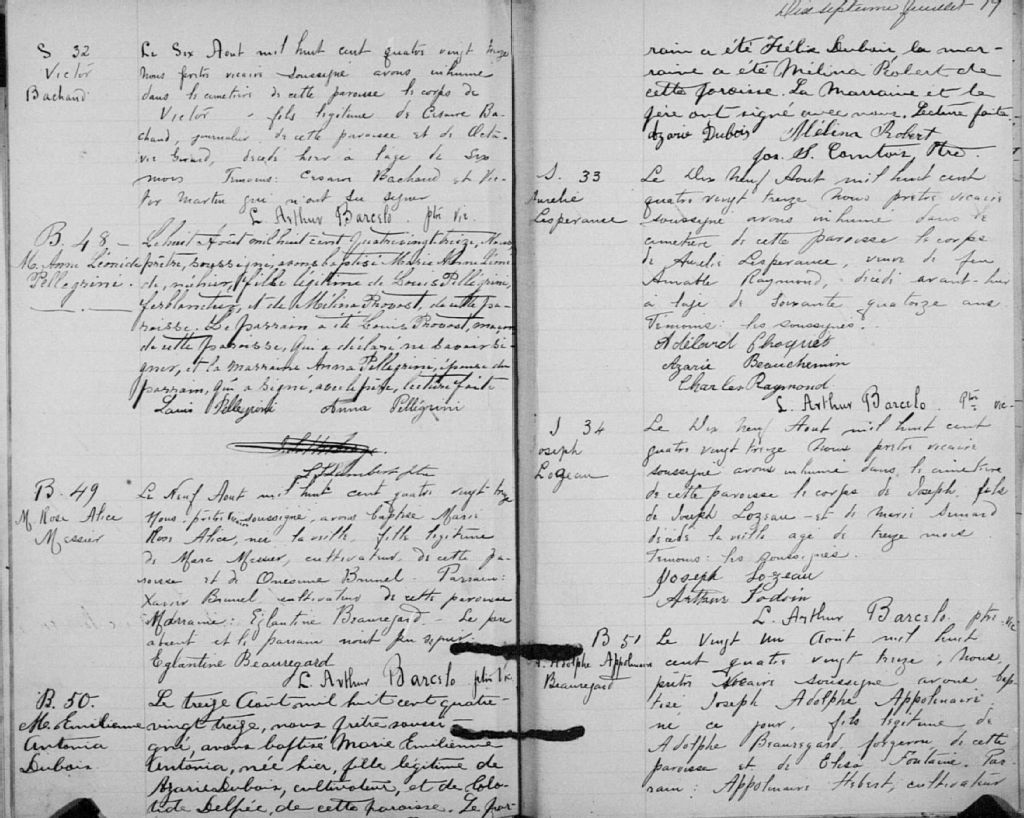 S 32
Victor
Bachand
Le Six Aout mil huit cent quatre vingt treize
Nous pretre vicaire soussigné avons inhumé
dans le cimetiere de cette paroisse le corps de
Victor fils legitime de Cesaire Ba-
chand, journalier de cette paroisse et de Octa-
vie Girard, decedé hier a l'age de Six
mois Temoins: Cesaire Bachand et Vic-
tor Martin qui n'ont su signer
L. Arthur Barcelo ptre vic.
B. 48.
M. Anne Léonide
Pellegrini.
Le huit Août mil huit cent Quatre vingt treize, Nous
prêtre, soussigné, avons baptisé Marie Anne Léoni
de, née hier, fille légitime de Louis Pellegrini,
ferblantier, et de Mélina Provost, de cette pa-
roisse. Le parrain a été Louis Provost, maçon
de cette paroisse, qui a déclaré ne savoir si-
gner, et la marraine Anna Pellegrini, épouse du
parrain, qui a signé, avec le père, lecture faite
Louis Pellegrini Anna Pellegrini
B. 49
M. Rose Alice
Messier
Le Neuf Aout mil huit cent quatre vingt treize
Nous pretre vic soussigné, avons baptisé Marie
Rose Alice, nee la veille, fille legitime
de Marc Messier, cultivateur de cette pa-
roisse et de Onesime Brunel. Parrain:
Xavier Brunel cultivateur de cette paroisse
Marraine: Eglantine Beauregard. Le pere
absent et le parrain n'ont pu signer
Eglantine Beauregard
L. Arthur Barcelo ptre Vic.
B. 50.
M. Emilienne
Antonia
Dubois
Le treize Août mil huit cent quatre
vingt treize, nous prêtre soussi-
gné, avons baptisé Marie Emilienne
Antonia, née hier, fille légitime de
Azarie Dubois, cultivateur, et de Clo-
tide Delpée, de cette paroisse. Le par-
Dix septieme feuillet 19
rain a été Félix Dubois la mar-
raine a été Mélina Robert de
cette paroisse. La Marraine et le
père ont signé avec nous. Lecture faite.
Azarie Dubois Mélina Robert
Jos. S. Comtois, Ptre
S. 33
Aurelie
Lesperance
Le Dix Neuf Aout mil huit cent
quatre vingt treize Nous pretre vicaire
soussigné avons inhumé dans le
cimetiere de cette paroisse le corps
de Aurelie Lesperance, veuve de feu
Amable Raymond, décédé avant-hier
à l'age de Soixante quatorze ans
Temoins: les soussignés.
Adélard Choquet
Azarie Beauchemin
Charles Raymond
L. Arthur Barcelo Ptre vic
S 34
Joseph
Lozeau
Le Dix Neuf Aout mil huit cent
quatre vingt treize Nous pretre vicaire
soussigné avons inhumé dans le cimetiere
de cette paroisse le corps de Joseph, fils
de Joseph Lozeau et de Marie Simard
décédé la veille agé de treize mois
Temoins: les soussignés.
Joseph Lozeau
Arthur Sodoin
L. Arthur Barcelo ptre Vic
B 51
J. Adolphe Appolinaire
Beauregard
Le vingt un Août mil huit
cent quatre vingt treize, Nous,
prêtre vicaire soussigné avons bap-
tisé Joseph Adolphe Appolinaire,
né ce jour, fils legitime de
Adolphe Beauregard, forgeron de cette
paroisse et de Elisa Fontaine. Par-
rain: Appolinaire Hebert, cultivateur